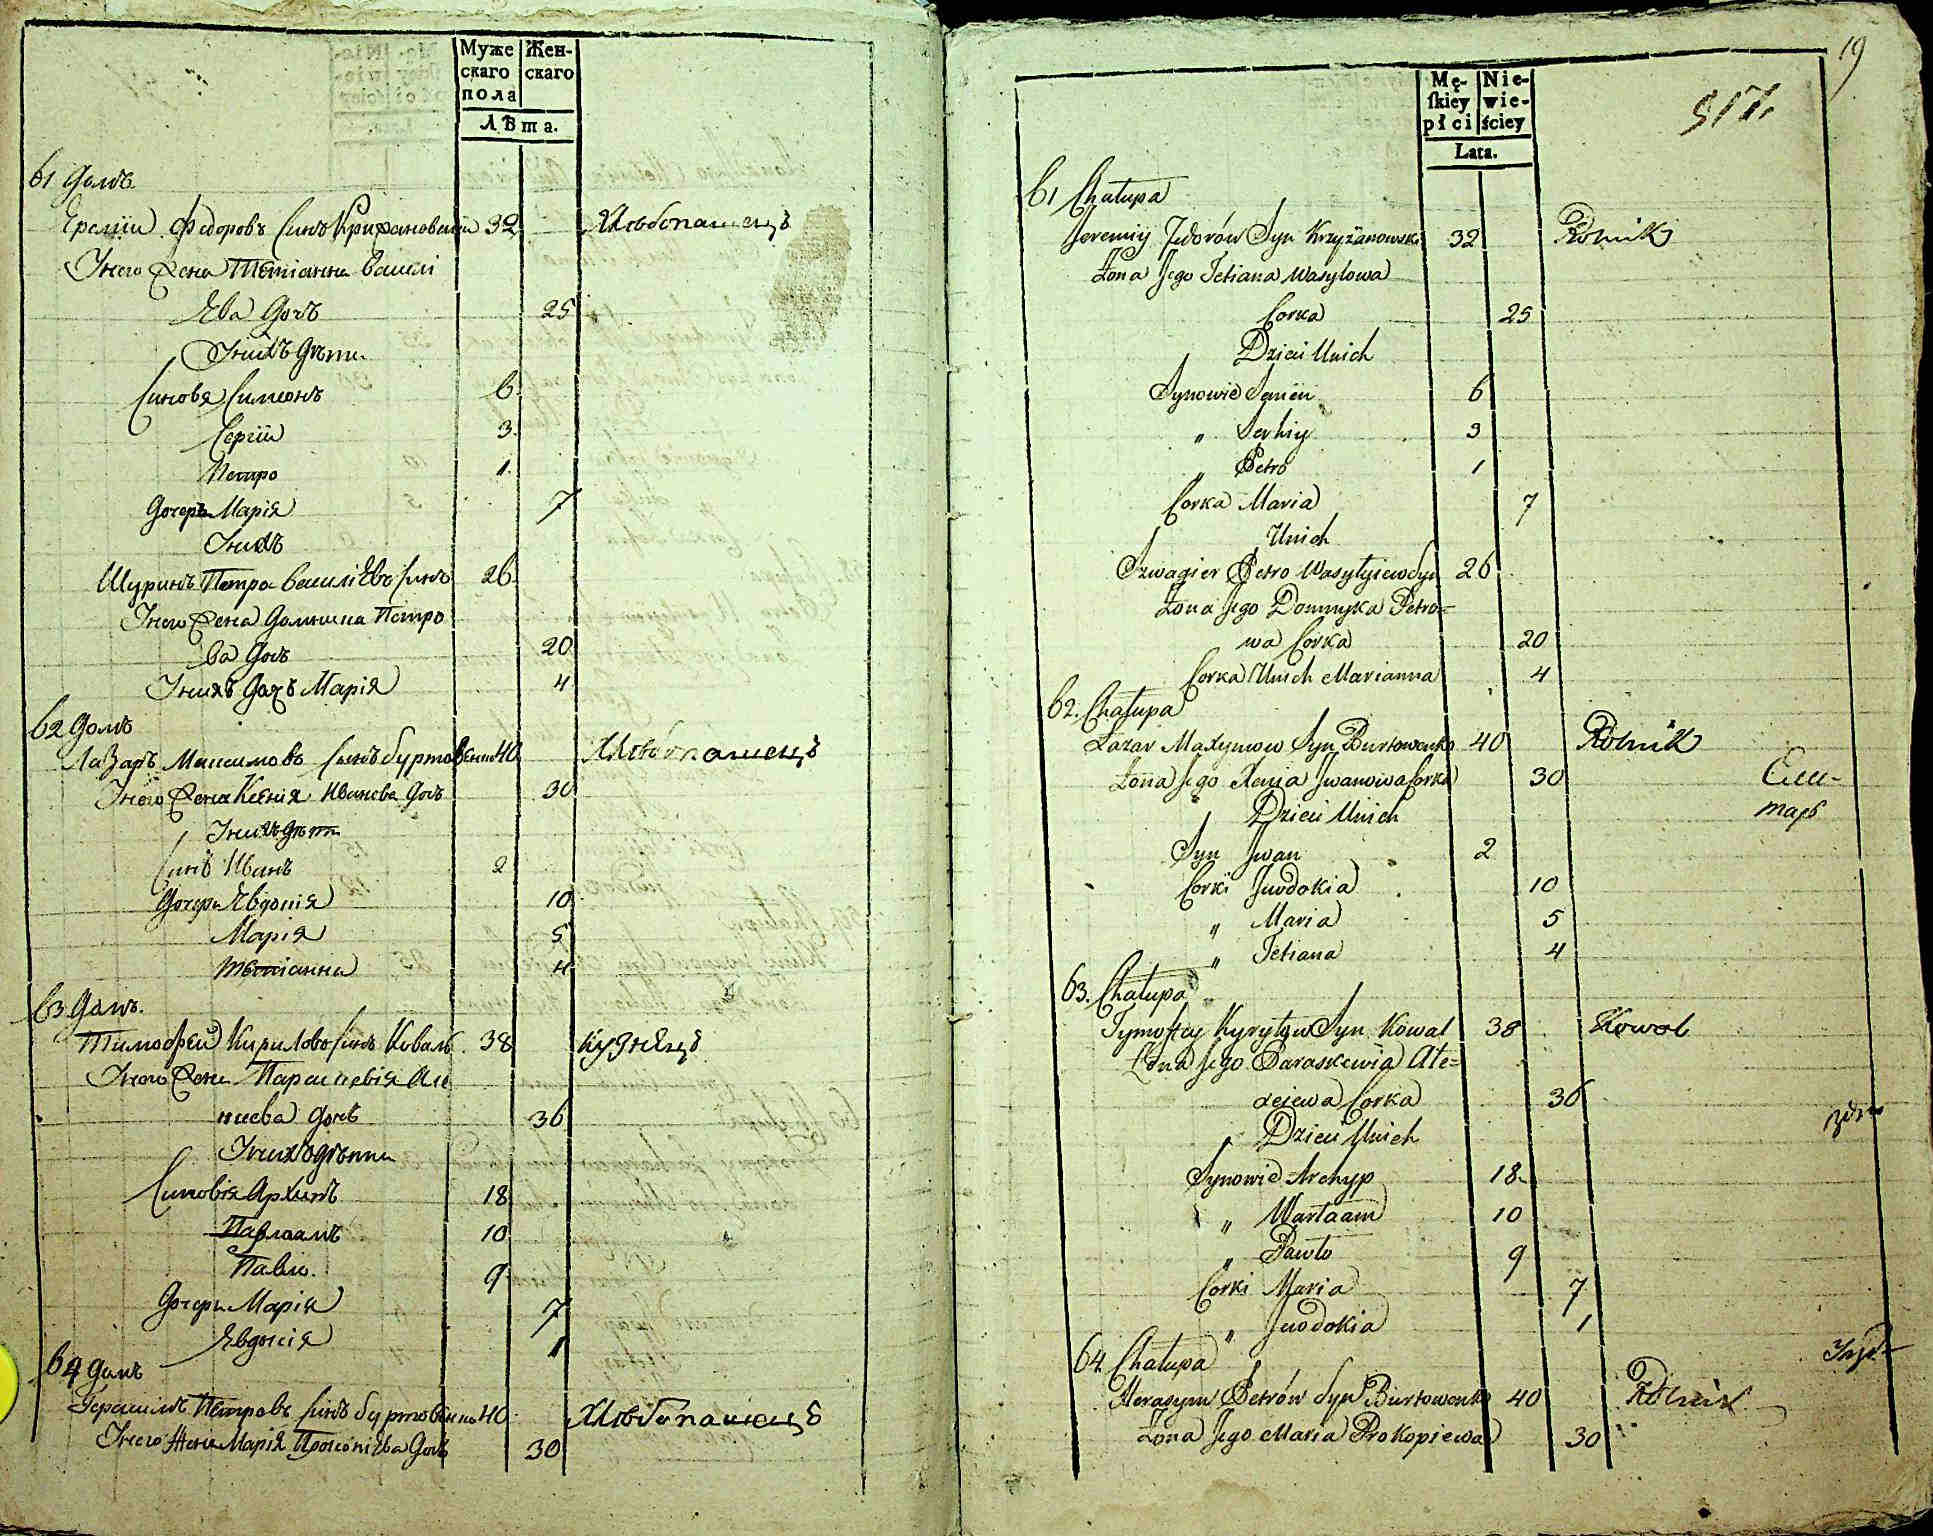 Муже
скаго
пола
Жен-
скаго
Лѣта.
61 Домъ
Еремiи Федоровъ Синъ Крижановскiи 32 Хлѣбопашецъ
У него Жена Тетiанна Васили
Ева Дочъ 25
У нихъ Дѣти
Синовя Симеонъ 6
Сергiи 3.
Петро 1.
Дочеръ Марiя 7
У нихъ
Шуринъ Петро Василiевъ Синъ 26
У него Жена Домникиа Петро
ва Дочъ 20
У нихъ Дочъ Марiя 4
62 Домъ
Лазаръ Максимовъ Синъ Буртовенко 40 Хлѣбопашецъ
У него Жена Ксенiя Иванова Дочъ 30
У нихъ Дѣти
Синъ Иванъ 2
Дочери Евдокiя 10
Марiя 5
Тетiанна 4
63 Домъ.
Тимофей Кириловъ Синъ Коваль 38 Кузнецъ
У него Жена Параскевiя Але
ксѣева Дочъ 36
У нихъ Дѣти
Синовiя Архипъ 18
Варлаамъ 10
Павло. 9
Дочери Марiя 7
Евдокiя 1
64 Домъ
Герасимъ Петровъ Синъ Буртовенко 40 Хлѣбопашецъ
У него Жена Марiя Прокопiева Дочъ 30
19
Mę-
skiey
płci
Nie-
wie-
ściey
Lata.
61 Chałupa
Jeremiy Fedorów Syn Krzyżanowski 32 Rolnik
Żona Jego Tetiana Wasylowa
Corka 25
Dzieci Unich
Synowie Semen 6
" Serhiy 3
" Petro 1
Corka Maria 7
Unich
Szwagier Petro Wasylyiew Syn 26
Żona Jego Domnyka Petro=
wa Corka 20
Corka Unich Marianna 4
62. Chałupa
Łazar Maxymow Syn Burtowenko 40 Rolnik
Żona Jego Xenia Jwanowa Corka 30
Dzieci Unich
Syn Jwan 2
Corki Juvdokia 10
" Maria 5
" Tetiana 4
63. Chałupa
Tymofiey Kyryłow Syn Kowal 38 Kowal
Żona Jego Paraskewia Ałe=
xeiewa Corka 36
Dzieci Unich
Synowie Archyp 18.
" Warłaam 10
" Pawło 9
Corki Maria 7
" Juvdokia 1
64 Chałupa
Herasym Petrów Syn Burtowenko 40 Rolnik
Żona Jego Maria Prokopiewa 30